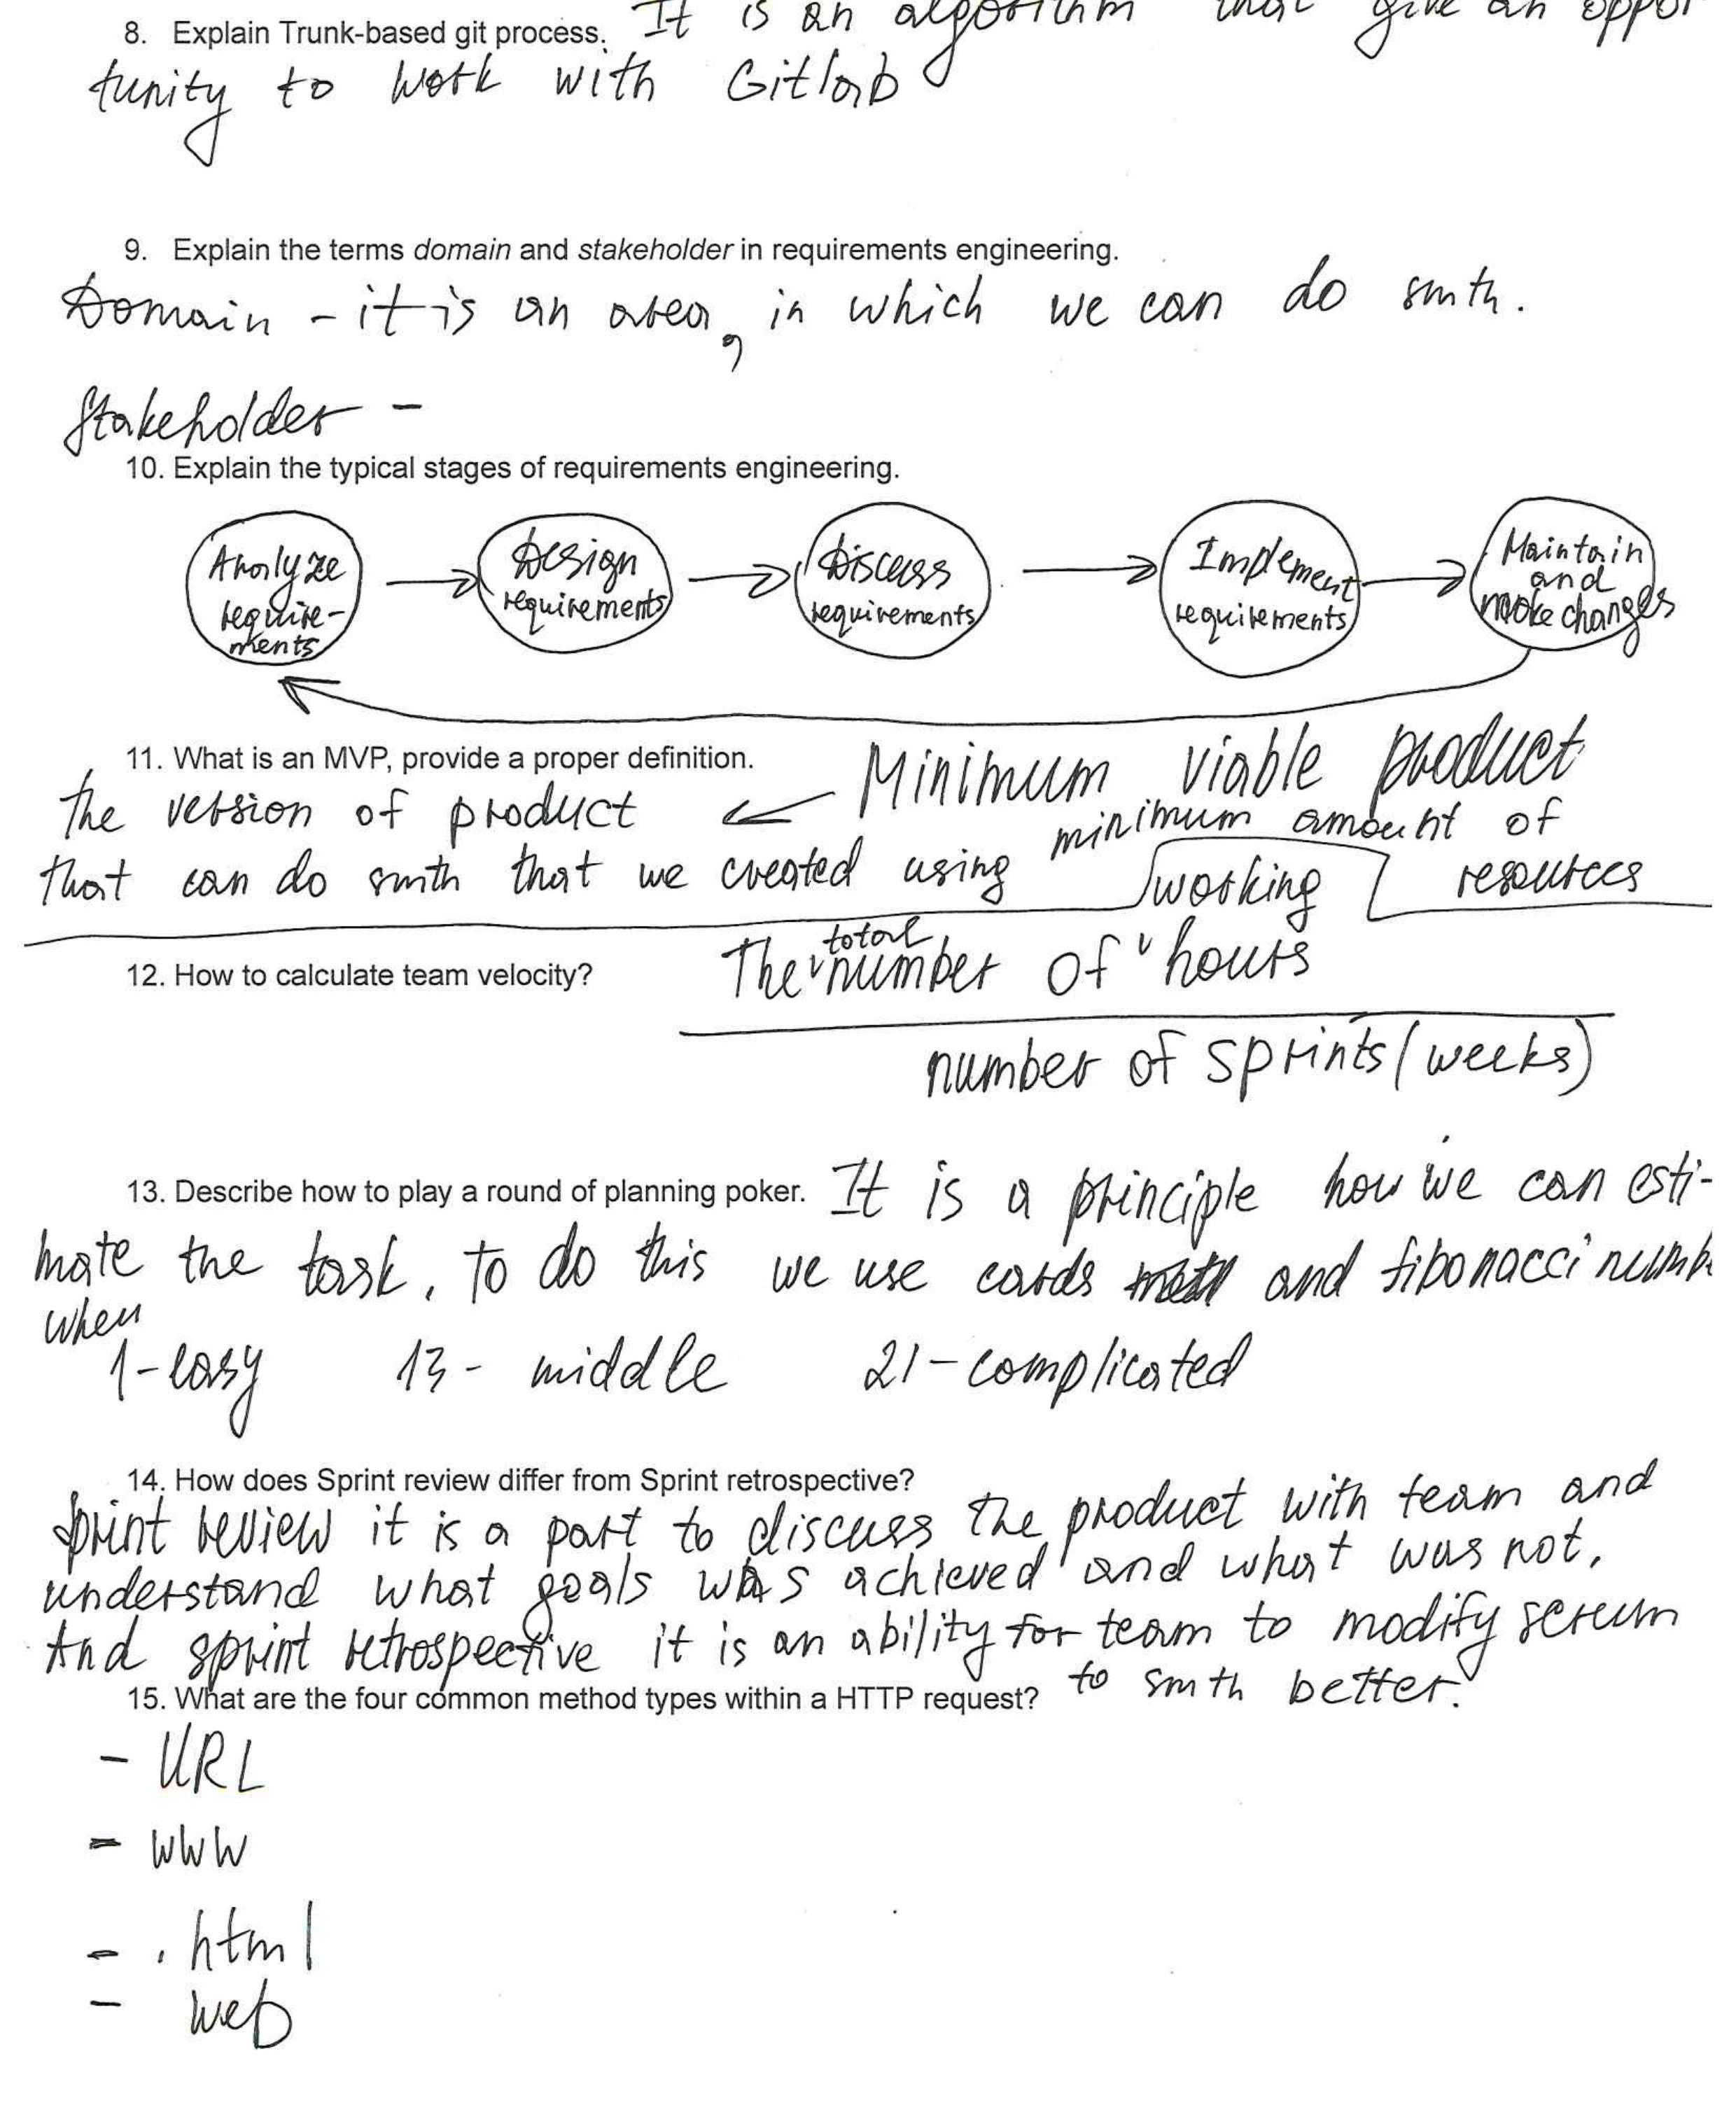 8. Explain Trunk-based git process. It is an algorithm that give an oppor
tunity to work with Gitlab
9. Explain the terms domain and stakeholder in requirements engineering.
Domain - it is an area, in which we can do smth.
Stakeholder -
10. Explain the typical stages of requirements engineering.
Analyze
require-
ments
Design
requirements
Discuss
requirements
Implement
requirements
Maintain
and
make changes
11. What is an MVP, provide a proper definition. Minimum viable product
the version of product
that can do smth that we created using minimum amount of
resources
12. How to calculate team velocity? The total number of working hours
number of sprints (weeks)
13. Describe how to play a round of planning poker. It is a principle how we can esti-
mate the task. To do this we use cards and fibonacci numb
when
1-easy 13- middle 21-complicated
14. How does Sprint review differ from Sprint retrospective?
Sprint review it is a part to discuss the product with team and
understand what goals was achieved and what was not.
And sprint retrospective it is an ability for team to modify scrum
to smth better.
15. What are the four common method types within a HTTP request?
- URL
- www
- .html
- web